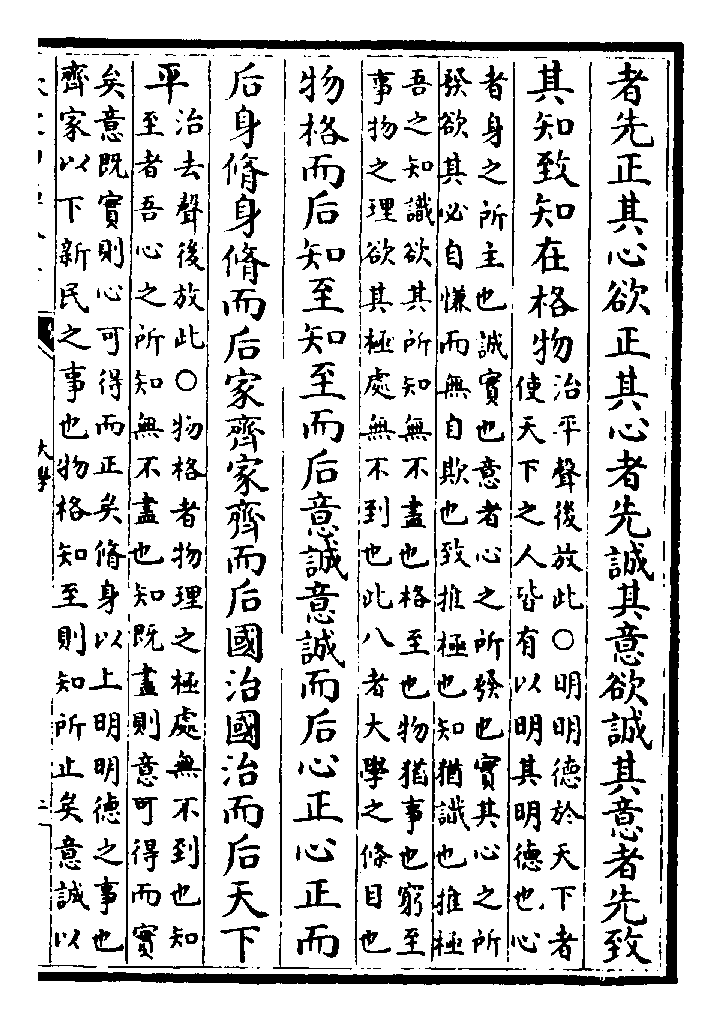 者先正其心欲正其心者先誠其意欲誠其意者先致
其知致知在格物
治平聲後放此○明明德於天下者
使天下之人皆有以明其明德也心
者身之所主也誠實也意者心之所發也實其心之所
發欲其必自慊而無自欺也致推極也知猶識也推極
吾之知識欲其所知無不盡也格至也物猶事也窮至
事物之理欲其極處無不到也此八者大學之條目也
物格而后知至知至而后意誠意誠而后心正心正而
后身脩身脩而后家齊家齊而后國治國治而后天下
平
治去聲後放此○物格者物理之極處無不到也知
至者吾心之所知無不盡也知既盡則意可得而實
矣意既實則心可得而正矣脩身以上明明德之事也
齊家以下新民之事也物格知至則知所止矣意誠以
大學
二